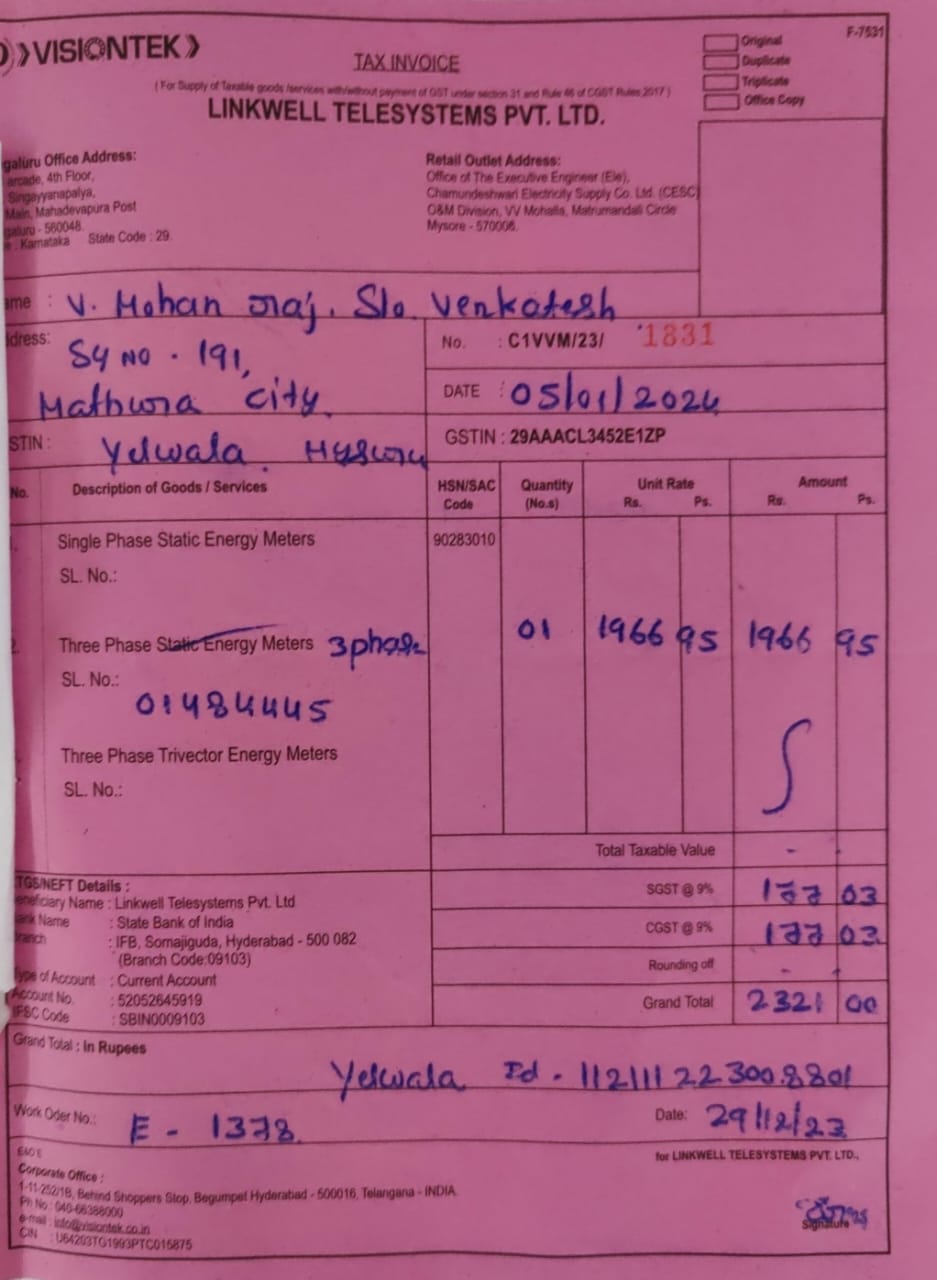 VISIONTEK
F-7531
TAX INVOICE
Original
Duplicate
Triplicate
Office Copy
( For Supply of Taxable goods /services with/without payment of GST under section 31 and Rule 46 of CGST Rules 2017 )
LINKWELL TELESYSTEMS PVT. LTD.
galuru Office Address:
arcade, 4th Floor,
Singayyanapalya,
Main, Mahadevapura Post
galuru - 560048.
e : Karnataka State Code : 29.
Retail Outlet Address:
Office of The Executive Engineer (Ele),
Chamundeshwari Electricity Supply Co. Ltd. (CESC)
O&M Division, VV Mohalla, Matrumandali Circle
Mysore - 570006.
ame : V. Mohan raj. S/o Venkatesh
dress: Sy No - 191,
Mathura City
No. : C1VVM/23/ 1831
DATE : 05/01/2024
STIN : Yelwala. Mysuru
GSTIN : 29AAACL3452E1ZP
No. Description of Goods / Services HSN/SAC Code Quantity (No.s) Unit Rate Rs. Ps. Amount Rs. Ps.
Single Phase Static Energy Meters 90283010
SL. No.:
2. Three Phase Static Energy Meters 3phase 01 1966 95 1966 95
SL. No.:
01484445
Three Phase Trivector Energy Meters
SL. No.:
Total Taxable Value - .
TGS/NEFT Details :
eneficiary Name : Linkwell Telesystems Pvt. Ltd
ank Name : State Bank of India
ranch : IFB, Somajiguda, Hyderabad - 500 082
(Branch Code:09103)
Type of Account : Current Account
Account No. : 52052645919
IFSC Code : SBIN0009103
SGST @ 9% 177 03
CGST @ 9% 177 03
Rounding off -
Grand Total 2321 00
Grand Total : In Rupees
Yelwala Id - 112111223008801
Work Oder No.: E - 1378
Date: 29/12/23
E&OE
for LINKWELL TELESYSTEMS PVT. LTD.,
Corporate Office :
1-11-252/1B, Behind Shoppers Stop, Begumpet Hyderabad - 500016, Telangana - INDIA.
Ph No : 040-66388000
e-mail : info@visiontek.co.in
CIN : U64203TG1993PTC015875
Signature